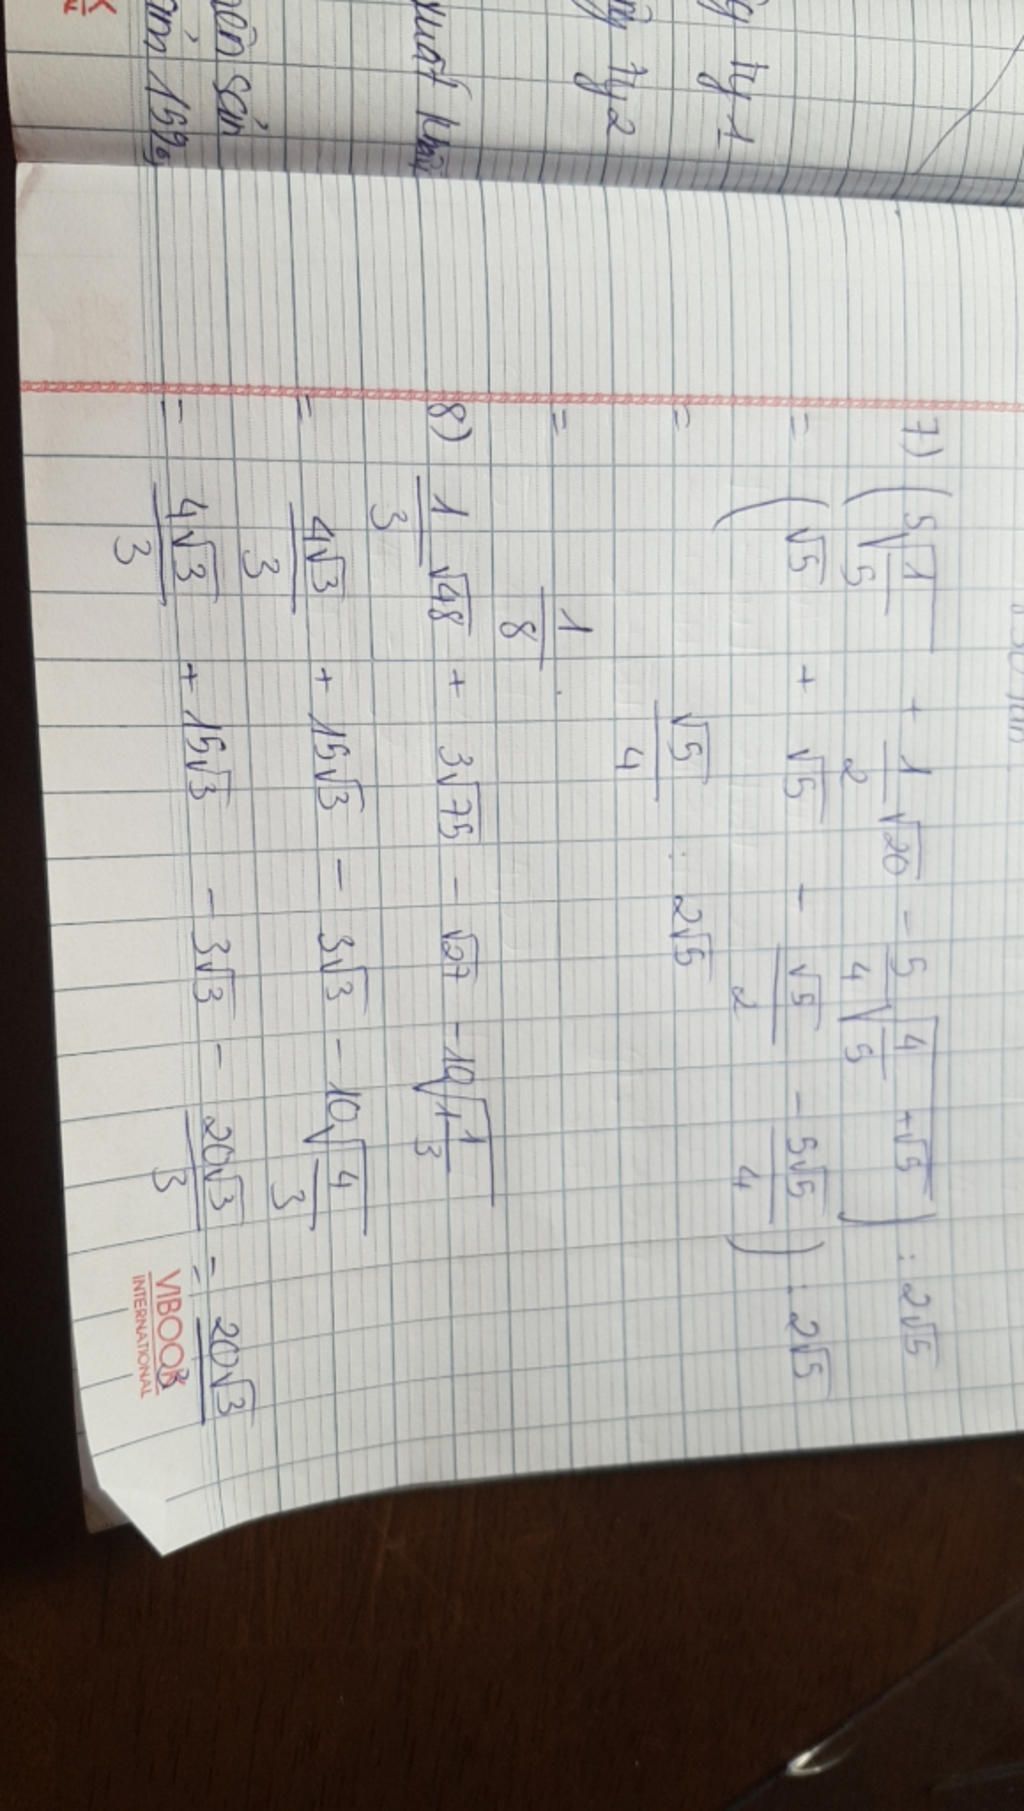 7) (5√(1/5) + 1/2 √20 - 5/4 √(4/5) + √5) : 2√5
= (√5 + √5 - √5/2 - 5√5/4) : 2√5
= √5/4 : 2√5
= 1/8
8) 1/3 √48 + 3√75 - √27 - 10√(1 1/3)
= 4√3/3 + 15√3 - 3√3 - 10√(4/3)
= 4√3/3 + 15√3 - 3√3 - 20√3/3 = 20√3/3
VIBOOK
INTERNATIONAL
ty 1
ty 2
sản
15%